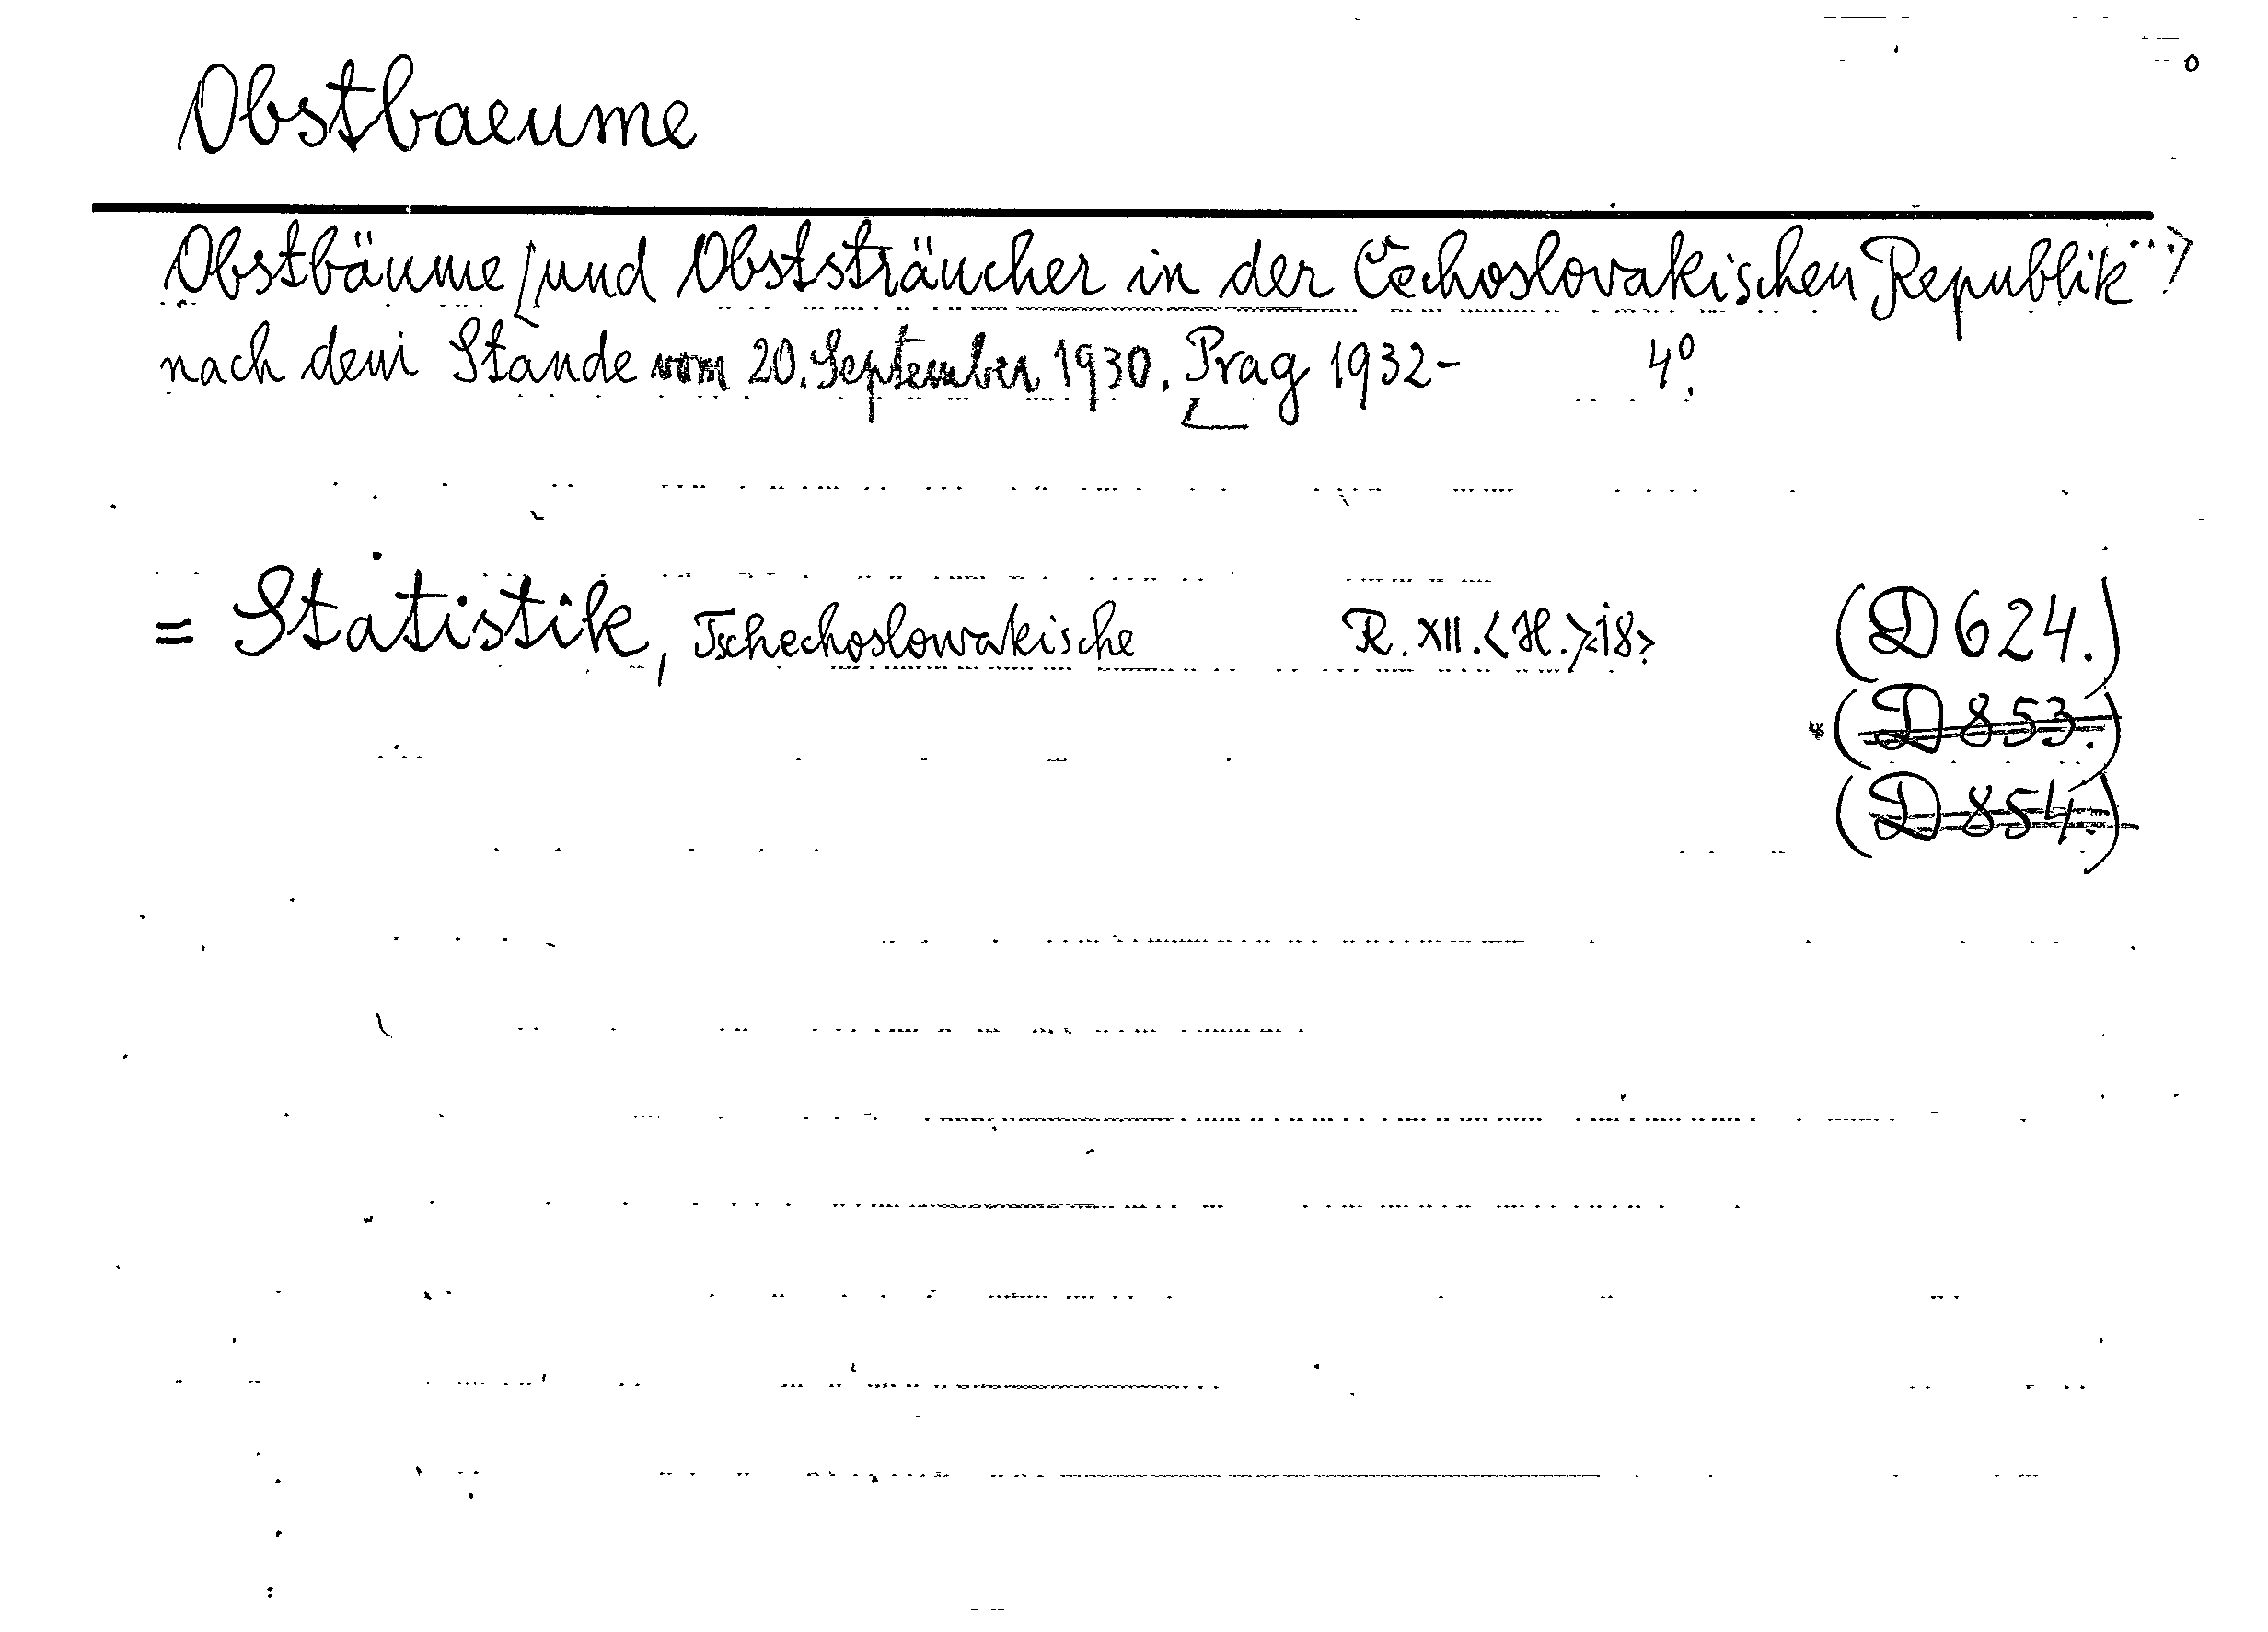 Obstbaeume
Obstbäume [und Obststräucher in der Čechoslovakischen Republik...>
nach dem Stande vom 20. September 1930. Prag 1932- 4º.
= Statistik, Tschechoslowakische R. XII. <H. > 18> (D 624.)
(D 853.)
(D 854.)